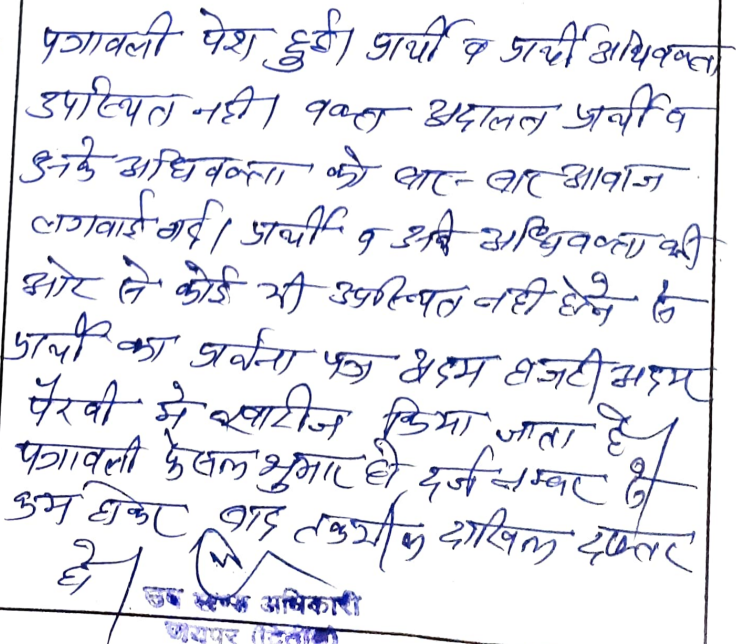 पत्रावली पेश हुई। प्रार्थी व प्रार्थी अधिवक्ता
उपस्थित नही। वक्त अदालत प्रार्थी व
उनके अधिवक्ता को बार-बार आवाज
लगवाई गई। प्रार्थी व उनके अधिवक्ता की
ओर से कोई भी उपस्थित नही होने से
प्रार्थी का प्रार्थना पत्र अदम हाजरी अदम
पैरवी मे खारीज किया जाता है।
पत्रावली फैसल शुमार हो दर्ज नम्बर से
कम होकर बाद तकमील दाखिल दफ्तर
हो।
उप खण्ड अधिकारी
जयपुर (द्वितीय)